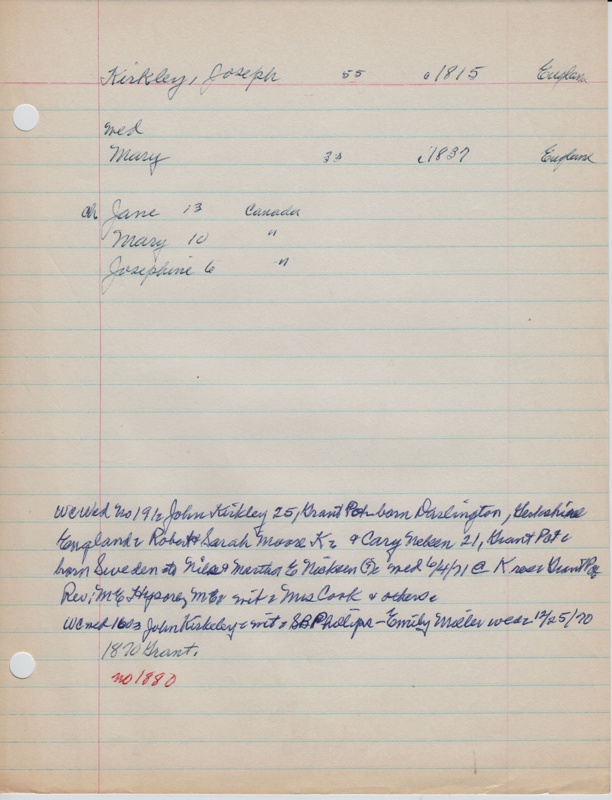 Kirkley, Joseph 55 1815 England
wed
Mary 33 1837 England
ch Jane 13 Canada
Mary 10 "
Josephine 6 "
WC Wed No 191 John Kirkley 25, Grant born Darlington,
England Robert & Sarah Moore K & Cary 21, Grant
born Sweden to Nils & Martha E wed 6/4/71 @ Grant
Rev: ME wit Mrs Cook & others
WC wed John Kirkeley wit SB Philips - Emily wed 12/25/70
1870 Grant.
no 1880